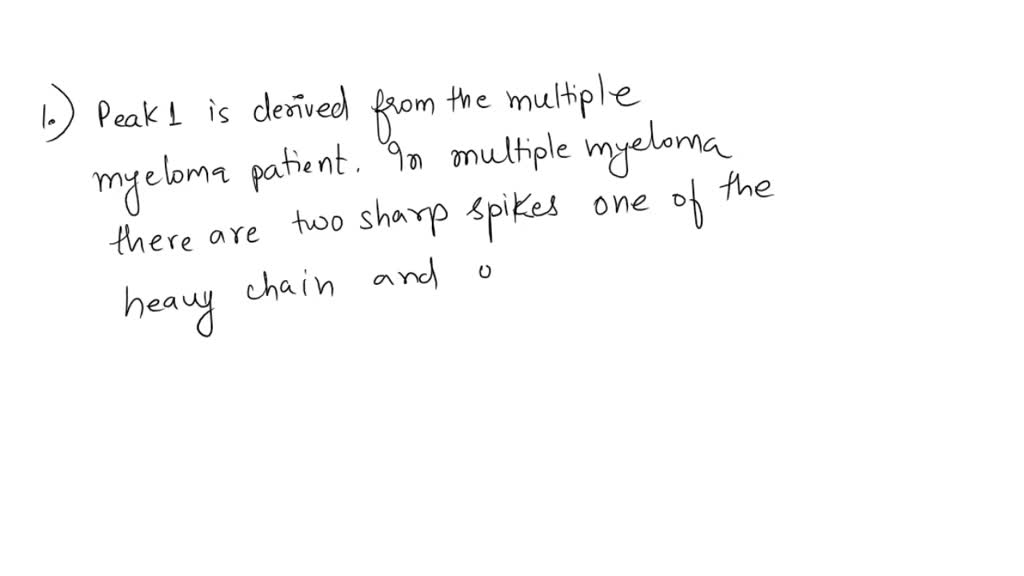 1.) Peak 1 is derived from the multiple
myeloma patient. In multiple myeloma
there are two sharp spikes one of the
heavy chain and o